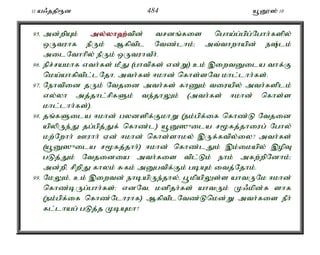 11 யஃததிரூன 484 யூனுஸ் 10
95. அன்றியும் அல்லாஹ்வின் வசனங்களை பொய்ப்பிப்போர்களில்
ஒருவராக நீரும் ஆகிவிட வேண்டாம்; அவ்வாறாயின் நஷ்டம்
அடைவோரில் நீரும் ஒருவராவீர்.
96. நிச்சயமாக எவர்கள் மீது (பாவிகள் என்று) உம் இறைவனுடைய வாக்கு
மெய்யாகிவிட்டதோ, அவர்கள் ஈமான் கொள்ளவே மாட்டார்கள்.
97. நோவினை தரும் வேதனை அவர்கள் காணும் வரையில் அவர்களிடம்
எல்லா அத்தாட்சிகளும் வந்தாலும் (அவர்கள் ஈமான் கொள்ள
மாட்டார்கள்)
98. தங்களுடைய ஈமான் பலனளிக்குமாறு (நம்பிக்கை கொண்டு வேதனை
யிலிருந்து தப்பித்துக் கொண்ட) யூனுஸுடைய சமூகத்தாரைப் போல்
மற்றோர் ஊரார் ஏன் ஈமான் கொள்ளாமல் இருக்கவில்லை? அவர்கள்
(யூனுஸுடைய சமூகத்தார்) ஈமான் கொண்டதும் இம்மையில் இழிவு
படுத்தும் வேதனையை அவர்களை விட்டும் நாம் அகற்றினோம்;
அன்றி, சிறிது காலம் சுகம் அனுபவிக்கும் படியும் வைத்தோம்.
99. மேலும், உம் இறைவன் நாடியிருந்தால், பூமியிலுள்ள யாவருமே ஈமான்
கொண்டிருப்பார்கள்; எனவே, மனிதர்கள் யாவரும் முஃமின்க ளாக
(நம்பிக்கை கொண்டோராக) ஆகிவிடவேண்டுமென்று அவர்களை நீர்
கட்டாயப் படுத்த முடியுமா?